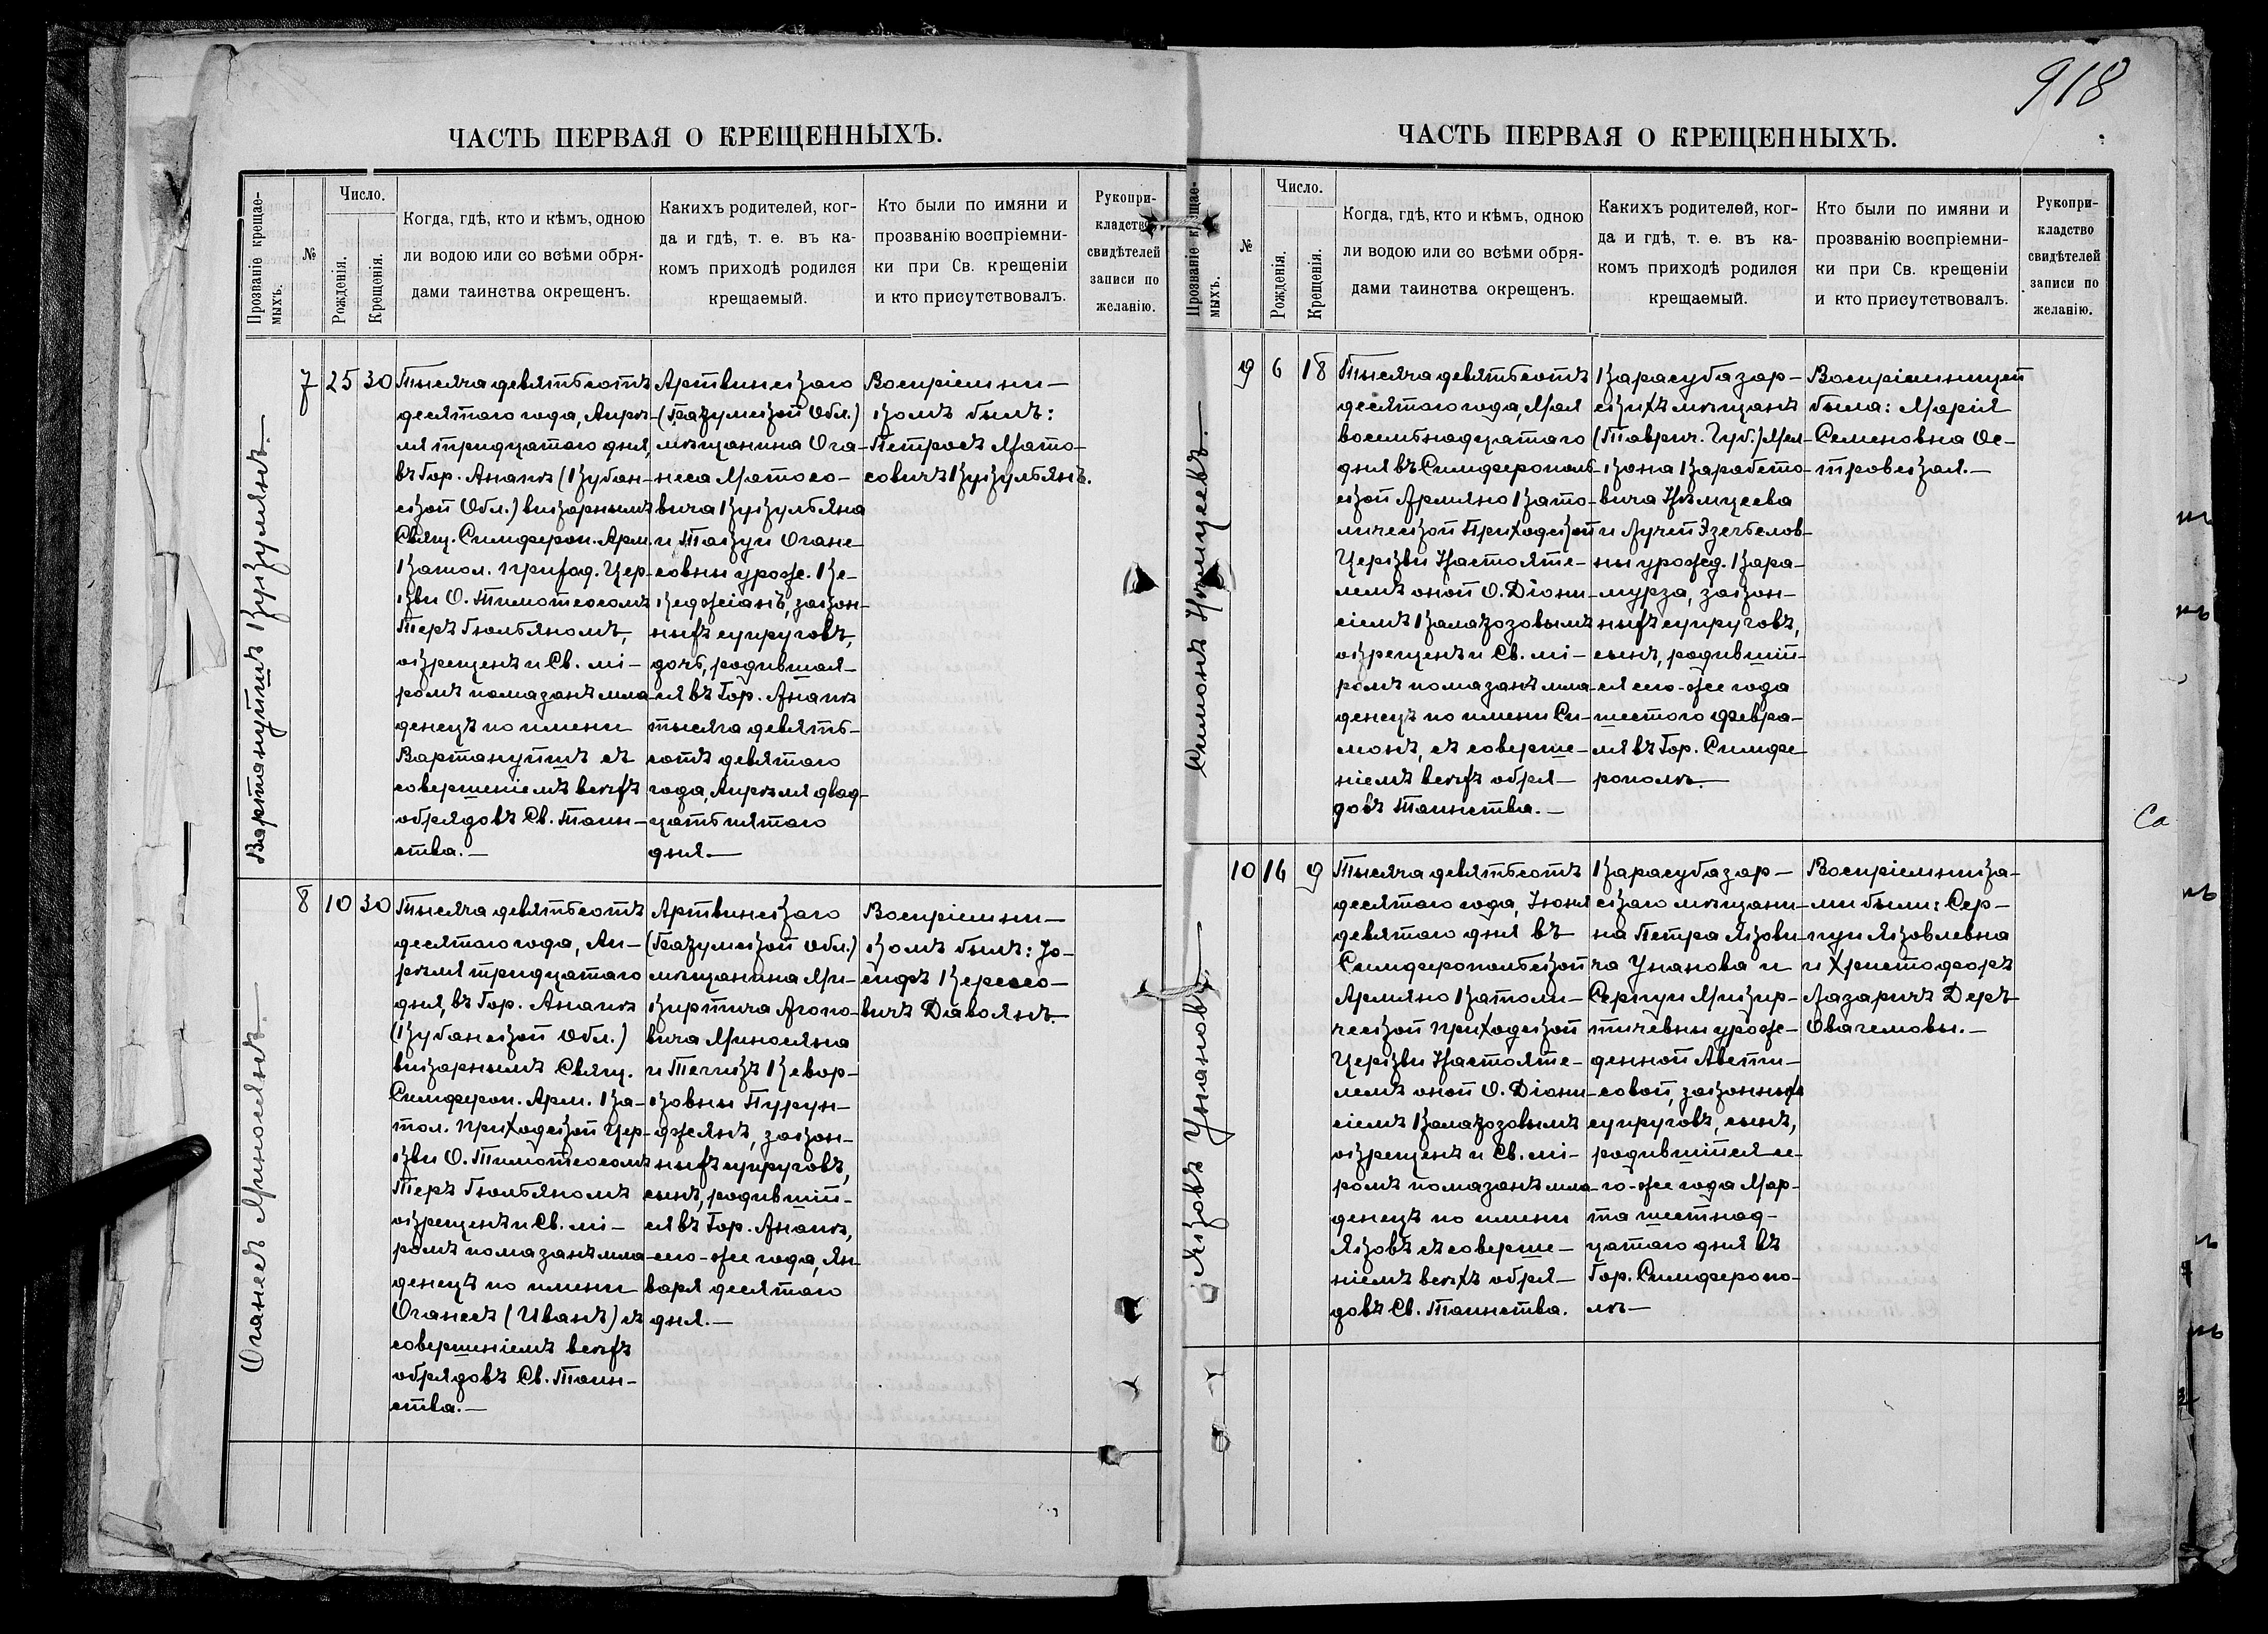 918
ЧАСТЬ ПЕРВАЯ О КРЕЩЕННЫХЪ.
Прозваніе крещае-
мыхъ.
№
Число.
Рожденія.
Крещенія.
Когда, гдѣ, кто и кѣмъ, одною
ли водою или со всѣми обря-
дами таинства окрещенъ.
Какихъ родителей, ког-
да и гдѣ, т. е. въ ка-
комъ приходѣ родился
крещаемый.
Кто были по имяни и
прозванію воспріемни-
ки при Св. крещеніи
и кто присутствовалъ.
Рукопри-
кладство
свидѣтелей
записи по
желанію.
Вартануйшъ Кузулянъ.
7
25
30
Тысяча девятьсотъ
десятаго года, Апрѣ-
ля тридцатаго дня,
въ Гор. Анапѣ (Кубан-
ской Обл.) викарнымъ
Свящ. Симферон. Арм.
Катол. приход. Цер-
кви О. Тимотеосомъ
Теръ Гюльбяномъ,
окрещенъ и Св. мі-
ромъ помазанъ мла-
денецъ по имени
Вартануйшъ съ
совершеніемъ всѣхъ
обрядовъ Св. Таин-
ства.—
Артвинскаго
мѣщанина Ога-
неса Матосо-
вича
и Такуи Огане-
совны урож. Ке-
закон-
ныхъ супруговъ,
дочь, родившая-
ся въ Гор. Анапѣ
тысяча девять-
сотъ девятаго
года, Апрѣля двад-
цать пятаго
дня.—
Воспріемни-
комъ былъ:
Петросъ Мато-
совичъ
Оганесъ Миносянъ.
8
10
30
Тысяча девятьсотъ
десятаго года, Ап-
рѣля тридцатаго
дня, въ Гор. Анапѣ
(Кубанской Обл.)
викарнымъ Свящ.
Симферон. Арм. Ка-
тол. приходской Цер-
кви О. Тимотеосомъ
Теръ Гюльбяномъ
окрещенъ и Св. мі-
ромъ помазанъ мла-
денецъ по имени
Оганесъ (Иванъ) съ
совершеніемъ всѣхъ
обрядовъ Св. Таин-
ства.—
Артвинскаго
мѣщанина Ми-
киртича Агопо-
вича Миносяна
и Тегизъ Кевор-
ковны Пурун-
джянъ, закон-
ныхъ супруговъ,
сынъ, родивший-
ся въ Гор. Анапѣ,
сего-же года, Ян-
варя десятаго
дня.—
Воспріемни-
комъ былъ: Іо-
сифъ Кересо-
вичъ Давоянъ.
ЧАСТЬ ПЕРВАЯ О КРЕЩЕННЫХЪ.
Прозваніе крещае-
мыхъ.
№
Число.
Рожденія.
Крещенія.
Когда, гдѣ, кто и кѣмъ, одною
ли водою или со всѣми обря-
дами таинства окрещенъ.
Какихъ родителей, ког-
да и гдѣ, т. е. въ ка-
комъ приходѣ родился
крещаемый.
Кто были по имяни и
прозванію воспріемни-
ки при Св. крещеніи
и кто присутствовалъ.
Рукопри-
кладство
свидѣтелей
записи по
желанію.
Симонъ Нѣмцевъ.
9
6
18
Тысяча девятьсотъ
десятаго года, Мая
восемьнадцатаго
дня въ Симферополь-
ской Армяно Като-
лической Приходской
Церкви Настояте-
лемъ оной О. Діони-
сіемъ Калагозовымъ
окрещенъ и Св. мі-
ромъ помазанъ мла-
денецъ по имени Си-
монъ, съ соверше-
ніемъ всѣхъ обря-
довъ Таинства.—
Карасубазар-
скихъ мѣщанъ
(Таврич. Губ.) Мел-
кона Карабето-
вича Нѣмцева
и Лучей Эзекелов-
ны урожд. Кара-
мурза, закон-
ныхъ супруговъ,
сынъ, родивший-
ся сего-же года
шестого Февра-
ля въ Гор. Симфе-
рополѣ.—
Воспріемницей
была: Марія
Семеновна Ос-
тровская.—
Яковъ Унановъ.
10
16
9
Тысяча девятьсотъ
десятаго года, Іюня
девятаго дня въ
Симферопольской
Армяно Католи-
ческой приходской
Церкви Настояте-
лемъ оной О. Діони-
сіемъ Калагозовымъ
окрещенъ и Св. мі-
ромъ помазанъ мла-
денецъ по имени
Яковъ съ соверше-
ніемъ всѣхъ обря-
довъ Св. Таинства.
Карасубазар-
скаго мѣщани-
на Петра Якови-
ча Унанова и
Серпуи Микир-
тичевны урож-
денной Авети-
совой, законныхъ
супруговъ, сынъ,
родившійся се-
го-же года Мар-
та шестнад-
цатаго дня въ
Гор. Симферопо-
лѣ—
Воспріемника-
ми были: Сер-
пуи Яковлевна
и Христофоръ
Лазаричъ Деръ
Овагемовы.—
Са